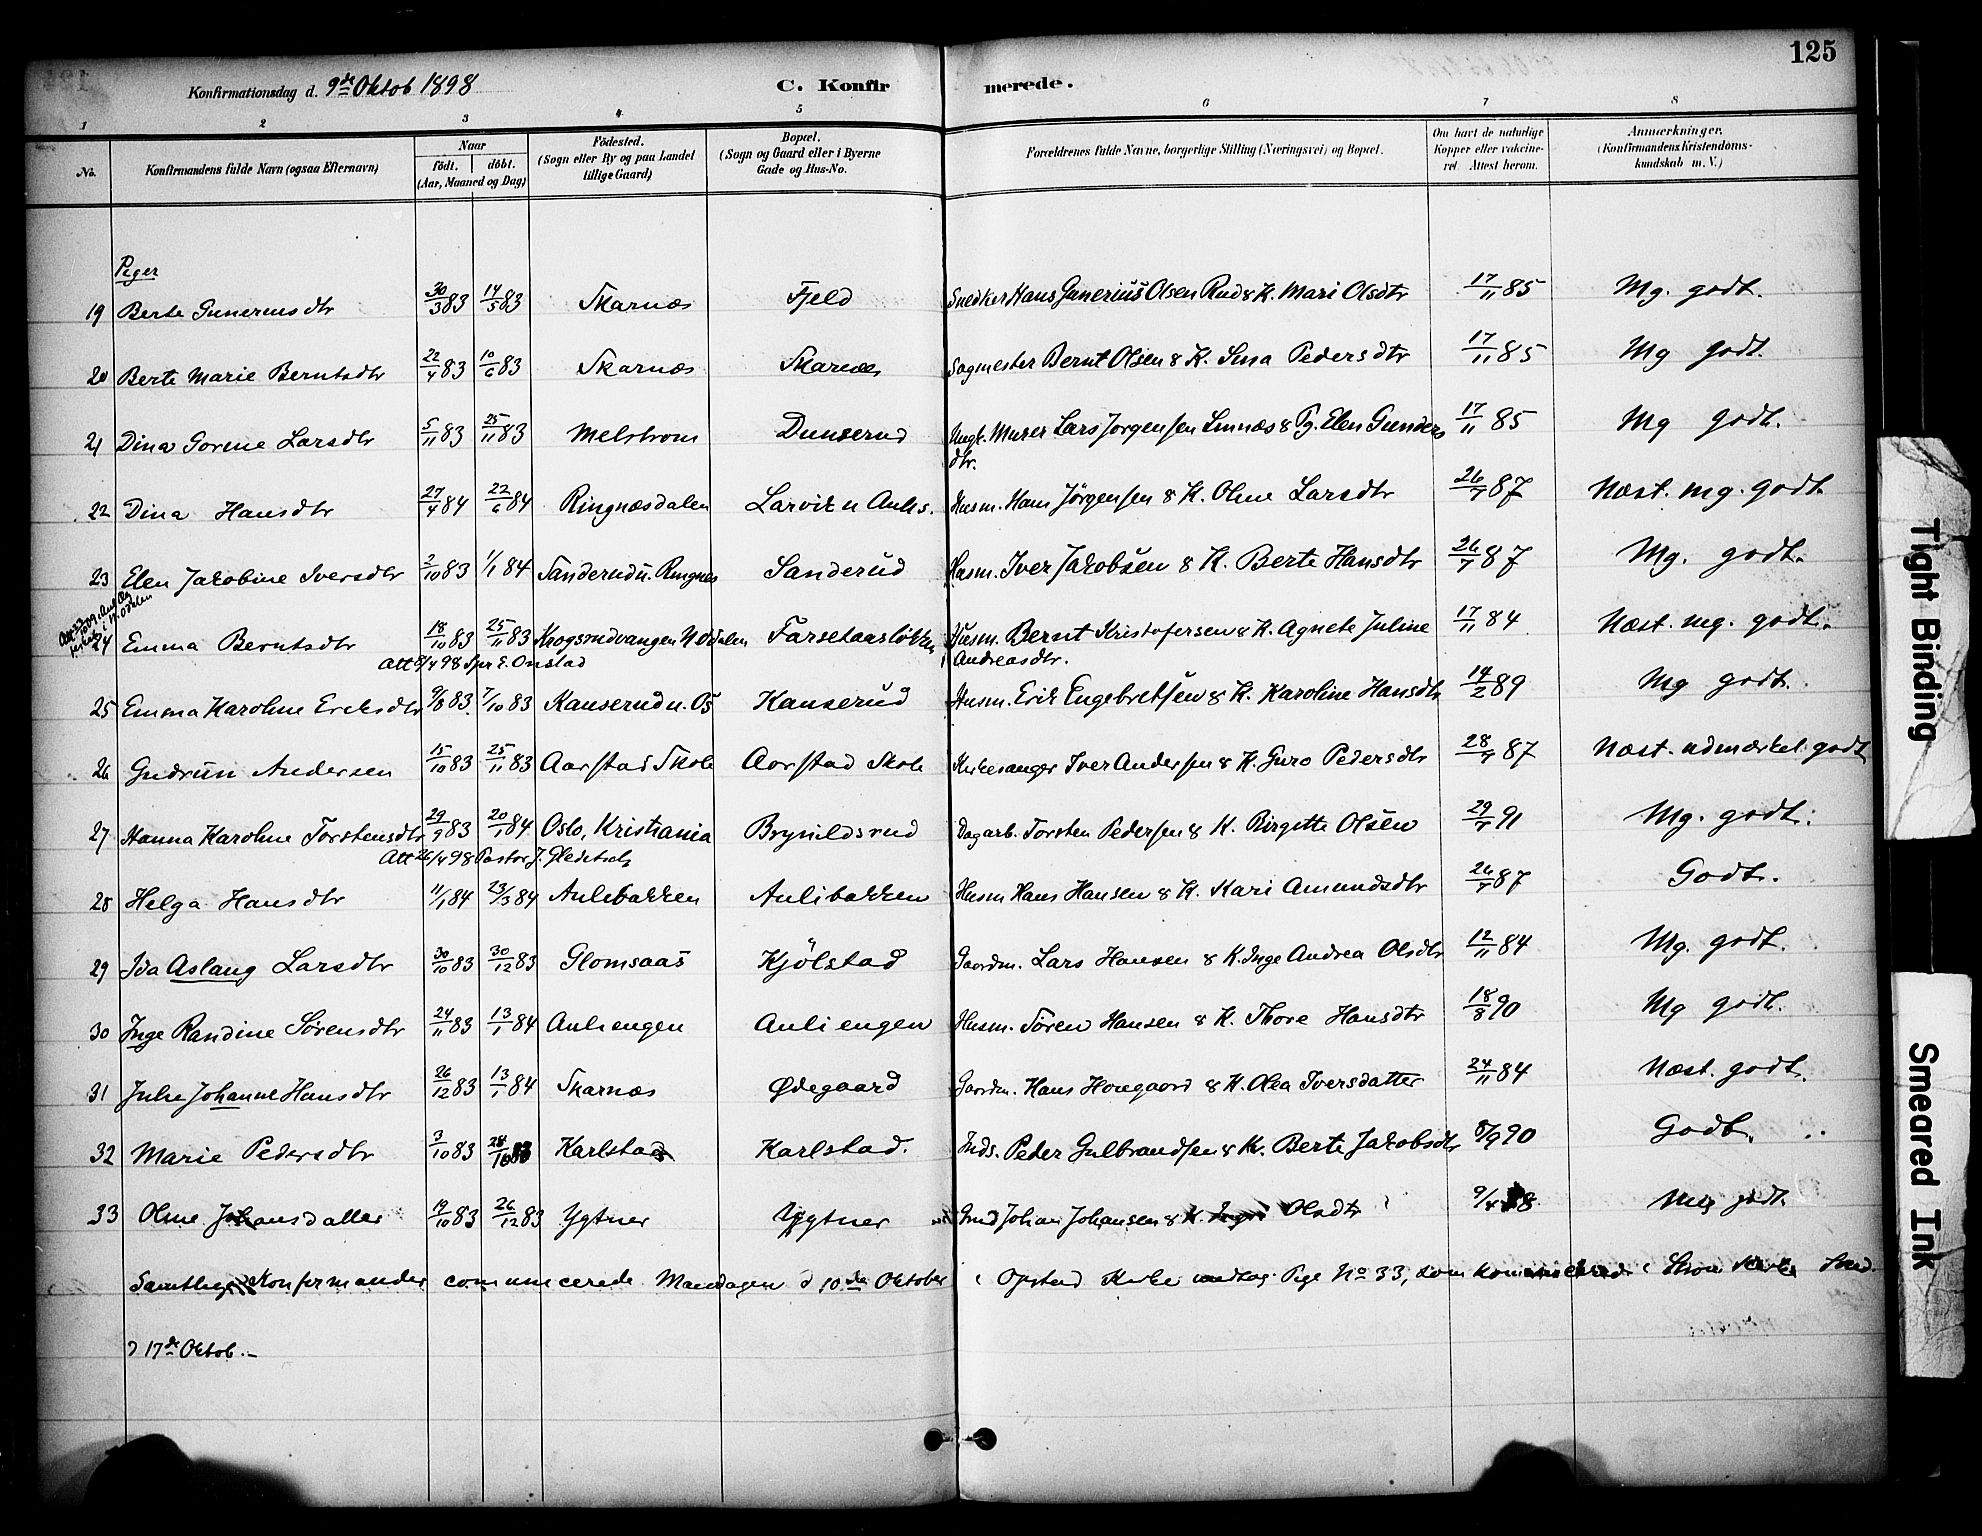 125
Konfirmationsdag d. 9de Oktob 1898 C. Konfir merede.
1 2 3 4 5 6 7 8
No. Konfirmandens fulde Navn (ogsaa Efternavn) Naar født. døbt. (Aar, Maaned og Dag) Fødested. (Sogn eller By og paa Landet tillige Gaard) Bopæl. (Sogn og Gaard eller i Byerne Gade og Hus-No. Forældrenes fulde Navne, borgerlige Stilling (Næringsvei) og Bopæl. Om havt de naturlige Kopper eller vakcineret. Attest herom. Anmærkninger. (Konfirmandens Kristendomskundskab m. V.)
Piger
19 Berte Guneriusdtr 30/3 83 14/5 83 Skarnæs Fjeld Snedker Hans Gunerius Olsen Rud & K. Mari Olsdtr 17/11 85 Mg. godt.
20 Berte Marie Berntsdtr 22/4 83 10/6 83 Skarnæs Skarnæs Sagmester Bernt Olsen & K. Sina Pedersdtr 17/11 85 Mg godt.
21 Dina Gorine Larsdtr 5/11 83 25/11 83 Melstrom Dunserud Ungk. Murer Lars Jørgensen Linnæs & Pg. Elen Gunders
dtr. 17/11 85 Mg godt.
22 Dina Hansdtr 27/4 84 22/6 84 Ringnæsdalen Larvik u Auli s. Husm. Hans Jörgensen & K. Oline Larsdtr 26/7 87 Næst. mg. godt.
23 Elen Jakobine Iversdtr 2/10 83 1/1 84 Sanderud u. Ringnes Sanderud Husm. Iver Jakobsen & K. Berte Hansdtr 26/7 87 Mg. godt.
24 Emma Berntsdtr 18/10 83 25/11 83 Krogsrudvangen N Odalen Farsetaasløkken Husm. Bernt Kristofersen & K. Agnete Juline
Andreasdtr. 17/11 84 Næst. mg. godt.
Att 8/4 98 Spr E. Onstad
25 Emma Karoline Eriksdtr 9/8 83. 7/10 83 Kanserud u. Os Kanserud Husm. Erik Engebretsen & K. Karoline Hansdtr 14/2 89 Mg godt.
26 Gudrun Andersen 15/10 83 25/11 83 Aarstad Skole Aarstad Skole Kirkesanger Iver Andersen & K. Guro Pedersdtr 28/7 87 Næst. udmærket godt
27 Hanna Karoline Torstensdtr 29/9 83 20/1 84 Oslo, Kristiania Brynildsrud Dagarb. Torsten Pedersen & K. Birgitte Olsen 29/7 91 Mg. godt.
Att 26/4 98 Pastor J. Gleditsch
28 Helga Hansdtr 11/1 84 23/3 84 Aulibakken Aulibakken Husm Hans Hansen & K. Kari Amundsdtr 26/7 87 Godt.
29 Ida Aslaug Larsdtr 30/10 83 30/12 83 Glomsaas Kjölstad Gaardm. Lars Hansen & K. Inge Andrea Olsdtr 12/11 84 Mg. godt.
30 Inge Randine Sörensdtr 24/11 83 13/1 84 Auliengen Auliengen Husm. Sören Hansen & K. Thore Hansdtr 18/8 90 Mg godt.
31 Julie Johanne Hansdtr 26/12 83 13/1 84 Skarnæs Ødegaard Gaardm. Hans Honegaard & K. Olea Iversdatter 24/11 84 Næst. godt.
32 Marie Pedersdtr 3/10 83 28/10 83 Karlstad Karlstad. Inds. Peder Gulbrandsen & K. Berte Jakobsdtr 8/9 90 Godt.
33 Oline Johansdatter 19/10 83 26/12 83 Ygtner Ygtner Johan Johansen & K. Olsdtr 9/4 88 Mg godt.
Samtlige Konfirmander communicerede Mandagen d 10de Oktober i Opstad Kirke undtag. Pige No 33, som i Strøm Kirke
d 17de Oktob. –
Tight Binding
Smeared Ink